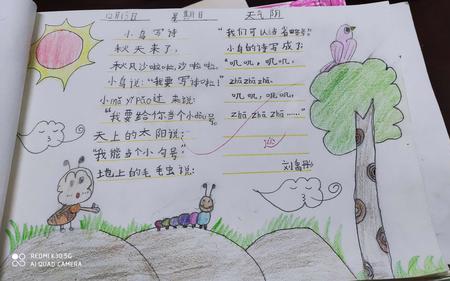 12月13日 星期日 天气阴
小鸟写诗
秋天来了，
秋风沙啦啦，沙啦啦。
小鸟说："我要写诗啦！"
小mǎ yǐ pāo过来说：
"我要给你当个小逗号"
天上的太阳说：
"我能当个小句号"
土地上的毛毛虫说：
"我们可以当省略号"
小鸟的诗写成了：
"叽叽，叽叽。
Zhā Zhā.
叽叽，叽叽，
Zhā Zhā Zhā……"
REDMI K30 5G
AI QUAD CAMERA